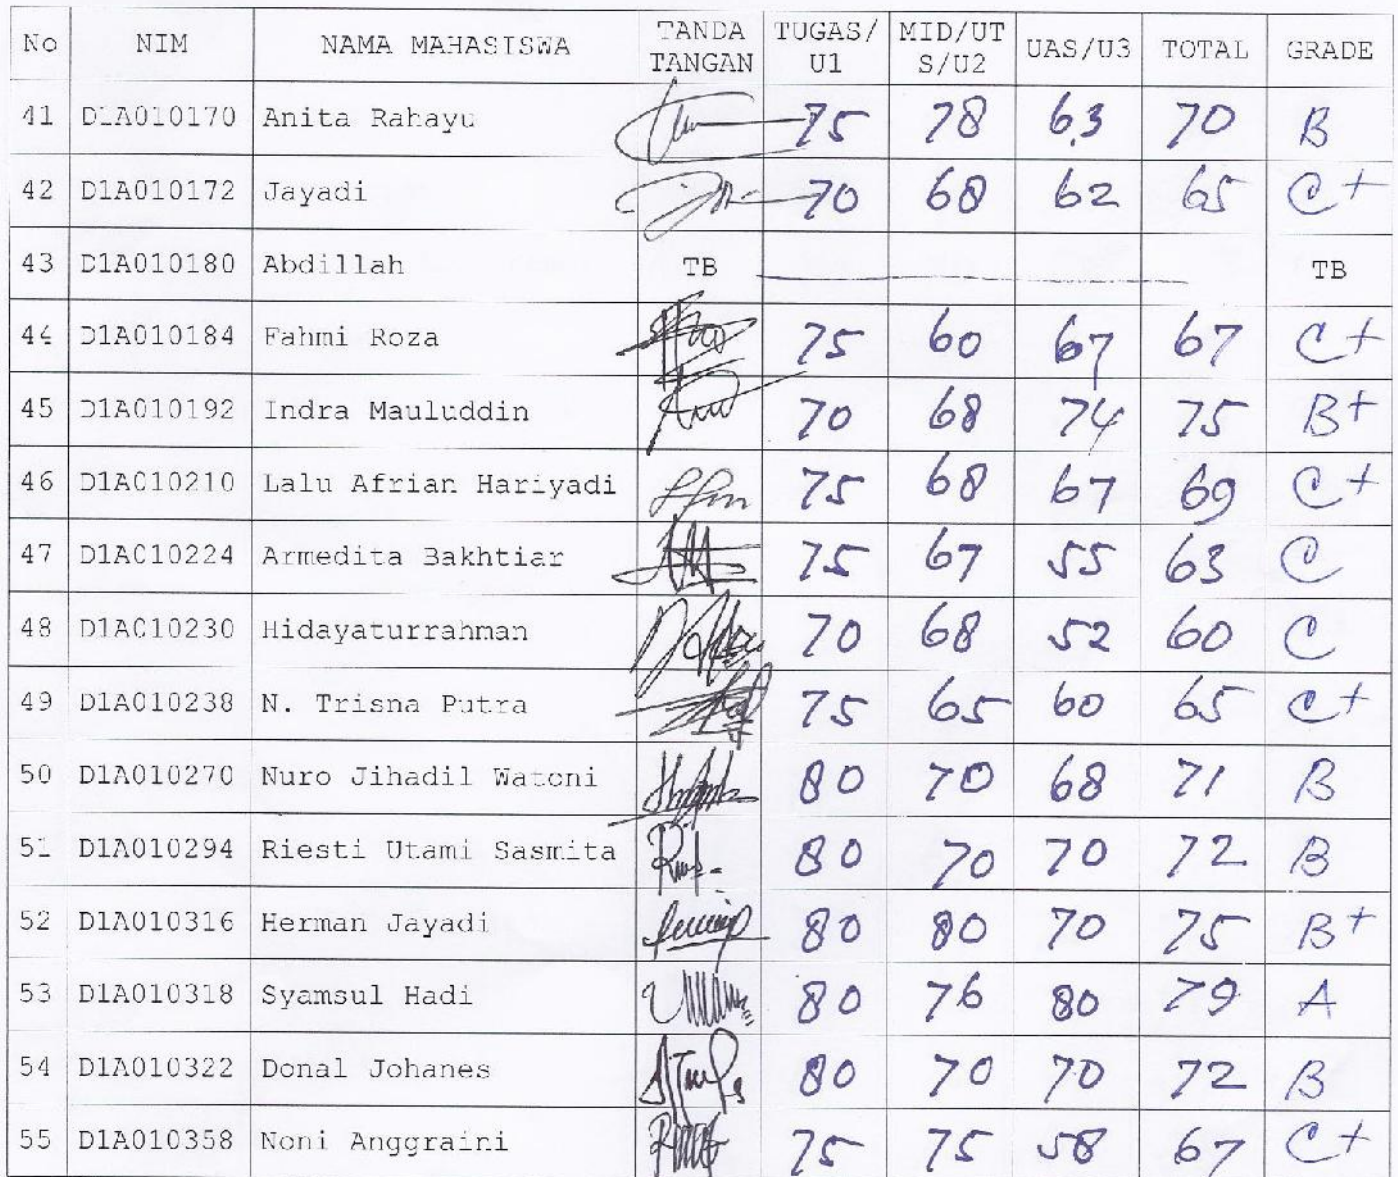 No NIM NAMA MAHASISWA TANDA TANGAN TUGAS/U1 MID/UTS/U2 UAS/U3 TOTAL GRADE
41 D1A010170 Anita Rahayu 75 78 63 70 B
42 D1A010172 Jayadi 70 68 62 65 C+
43 D1A010180 Abdillah TB TB
44 D1A010184 Fahmi Roza 75 60 67 67 C+
45 D1A010192 Indra Mauluddin 70 68 74 75 B+
46 D1A010210 Lalu Afrian Hariyadi 75 68 67 69 C+
47 D1A010224 Armedita Bakhtiar 75 67 55 63 C
48 D1A010230 Hidayaturrahman 70 68 52 60 C
49 D1A010238 N. Trisna Putra 75 65 60 65 C+
50 D1A010270 Nuro Jihadil Watoni 80 70 68 71 B
51 D1A010294 Riesti Utami Sasmita 80 70 70 72 B
52 D1A010316 Herman Jayadi 80 80 70 75 B+
53 D1A010318 Syamsul Hadi 80 76 80 79 A
54 D1A010322 Donal Johanes 80 70 70 72 B
55 D1A010358 Noni Anggraini 75 75 58 67 C+